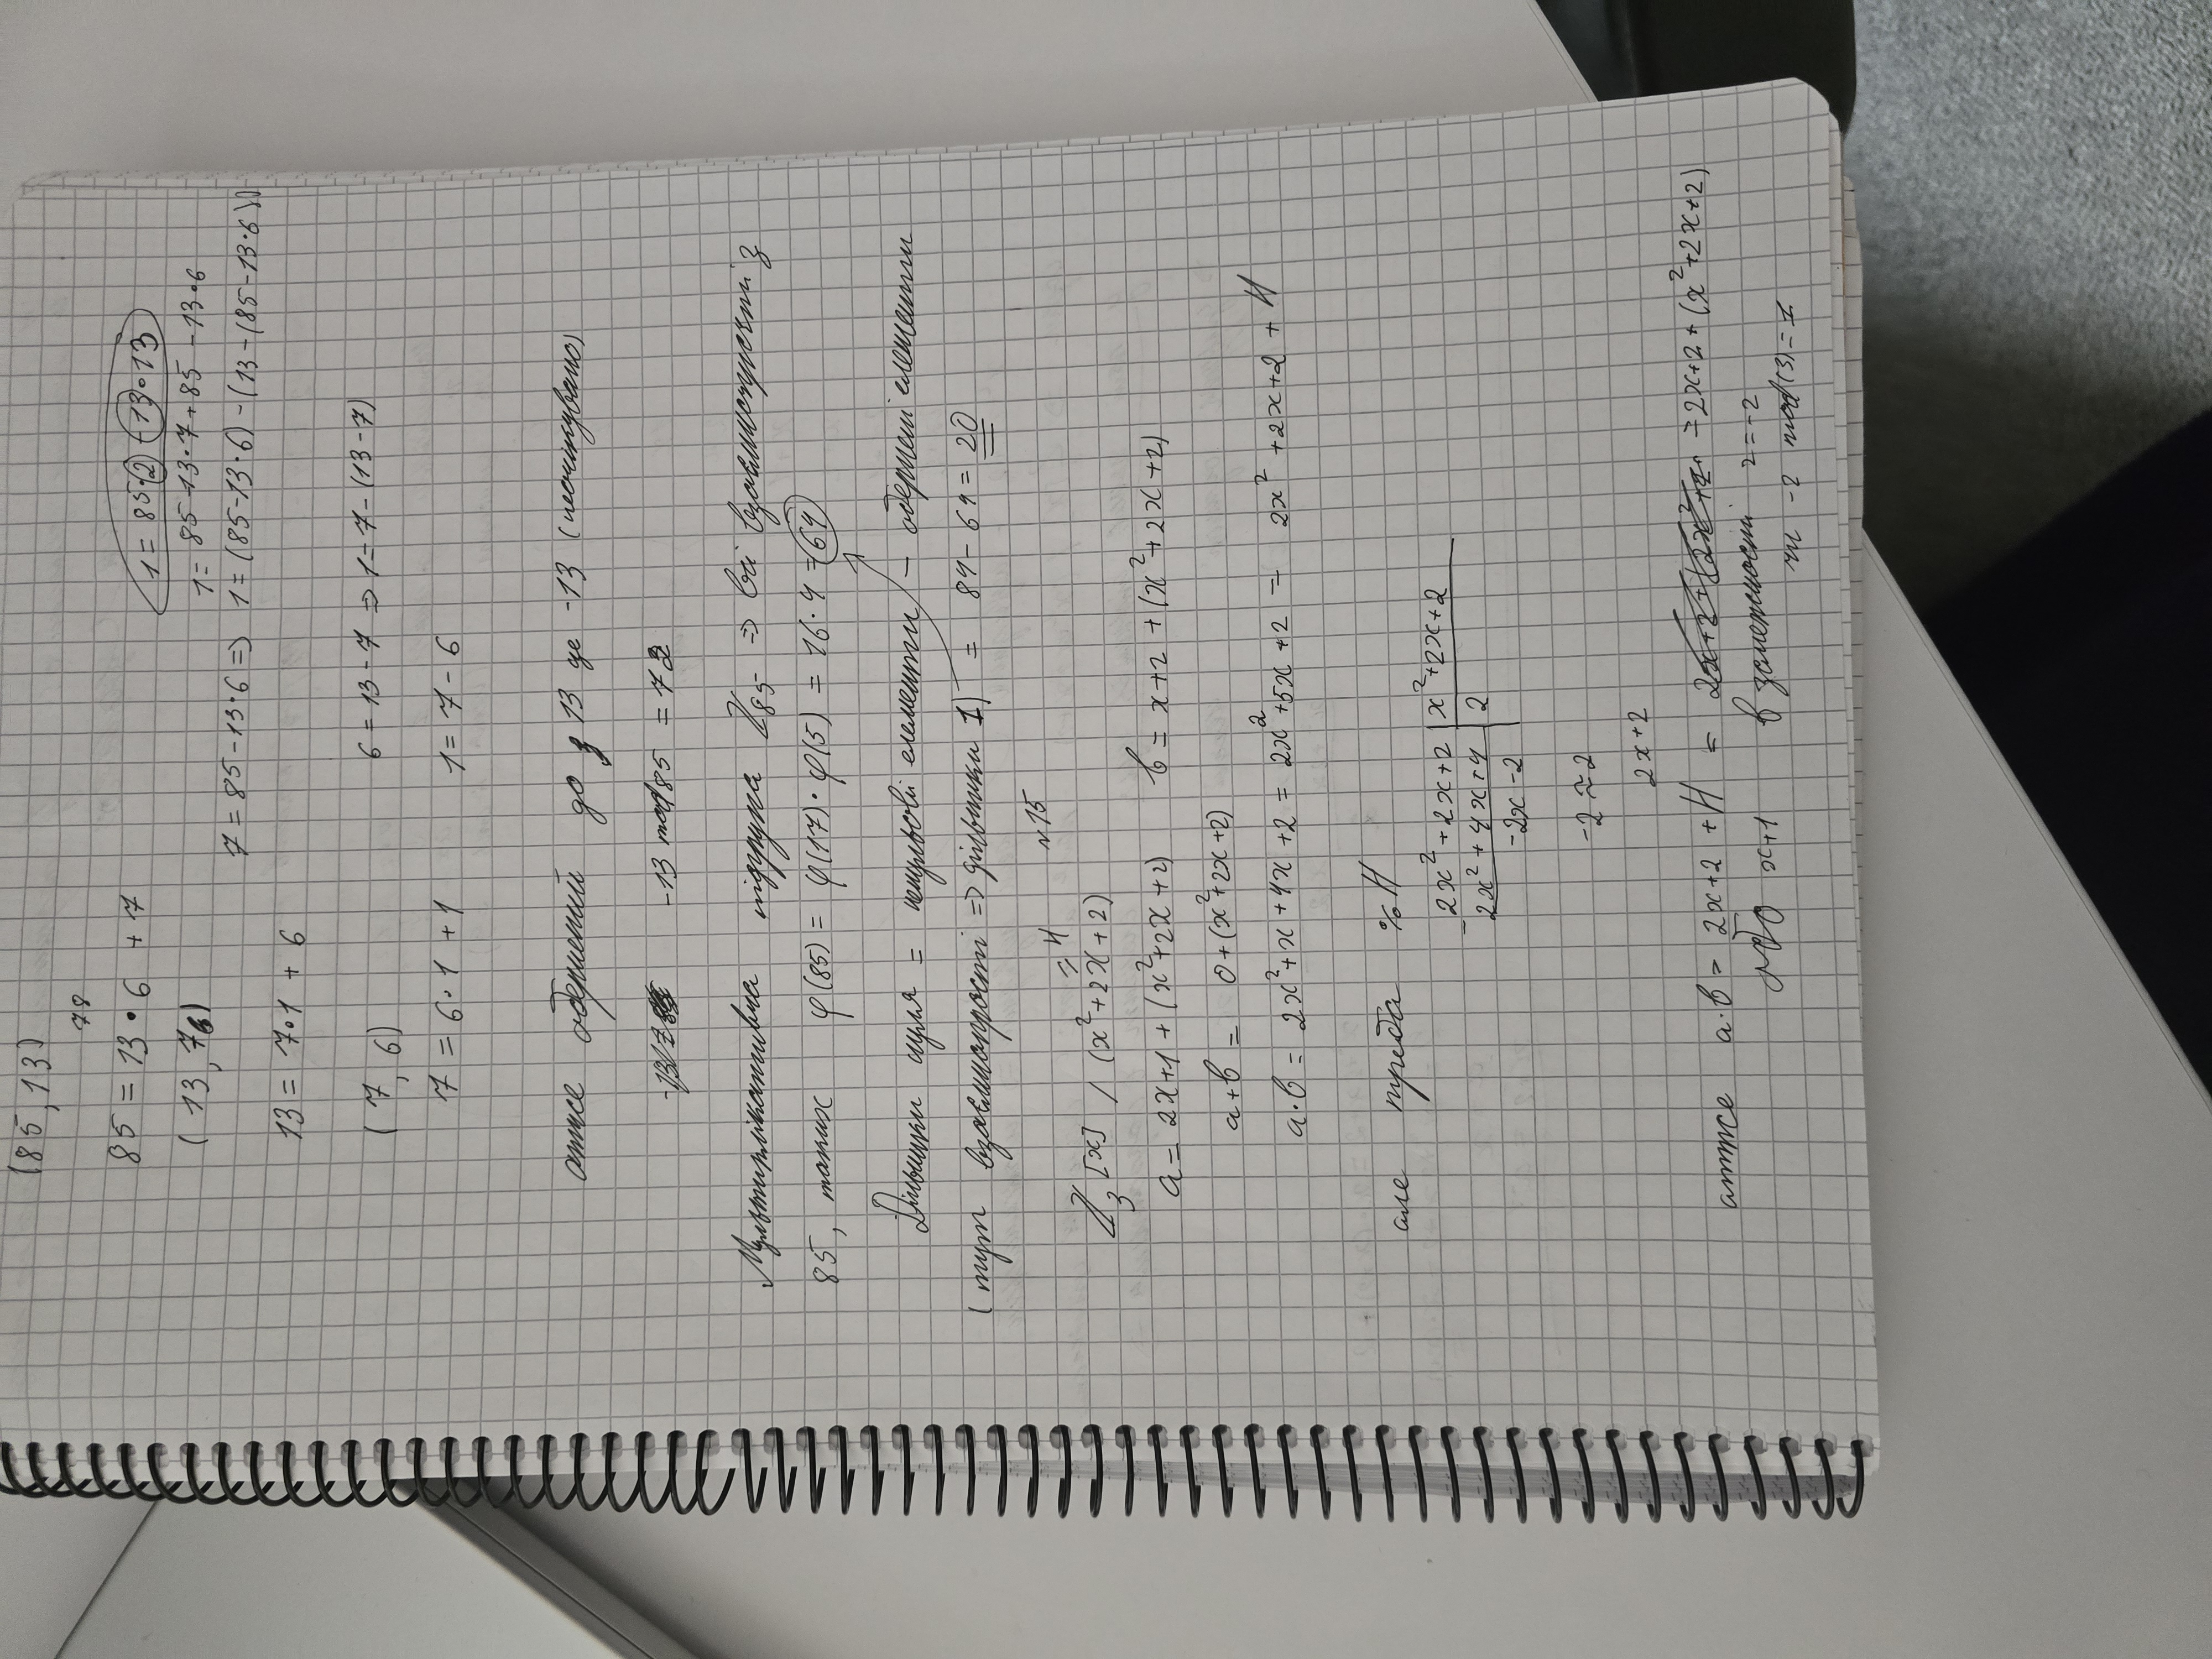 (85, 13)
78
85 = 13 • 6 + 7
1 = 85·2 -13·13
1 = 85 -13·7 + 85 - 13·6
(13, 7)
7 = 85 - 13·6 => 1 = (85-13·6) - (13 - (85-13·6))
13 = 7·1 + 6
(7, 6)
6 = 13 - 7 => 1 = 7 - (13 - 7)
7 = 6·1 + 1
1 = 7 - 6
отже обернений до 13 це -13 (неочікувано)
-13 mod 85 = 72
Мультиплікативна підгрупа ℤ85 => всі взаємнопрості з
85, таких φ(85) = φ(17)·φ(5) = 16·4 = 64
Дільники нуля = ненульові елементи - обернені елементи
(тут взаємнопрості => дільники 1) = 84 - 64 = 20
N15
= H
ℤ3[x] / (x²+2x+2)
a = 2x+1 + (x²+2x+2) b = x+2 + (x²+2x+2)
a+b = 0+(x²+2x+2)
a·b = 2x²+x+4x+2 = 2x²+5x+2 = 2x²+2x+2 + H
але треба % H
- 2x²+2x+2 | x²+2x+2
2x²+4x+4 | 2
-2x -2
-2 ≈ 2
2x+2
отже a·b = 2x+2 + H = 2x+2+(2x²+2 = 2x+2+(x²+2x+2)
або x+1 в залежності 2=-2
чи -2 mod(3) = 1